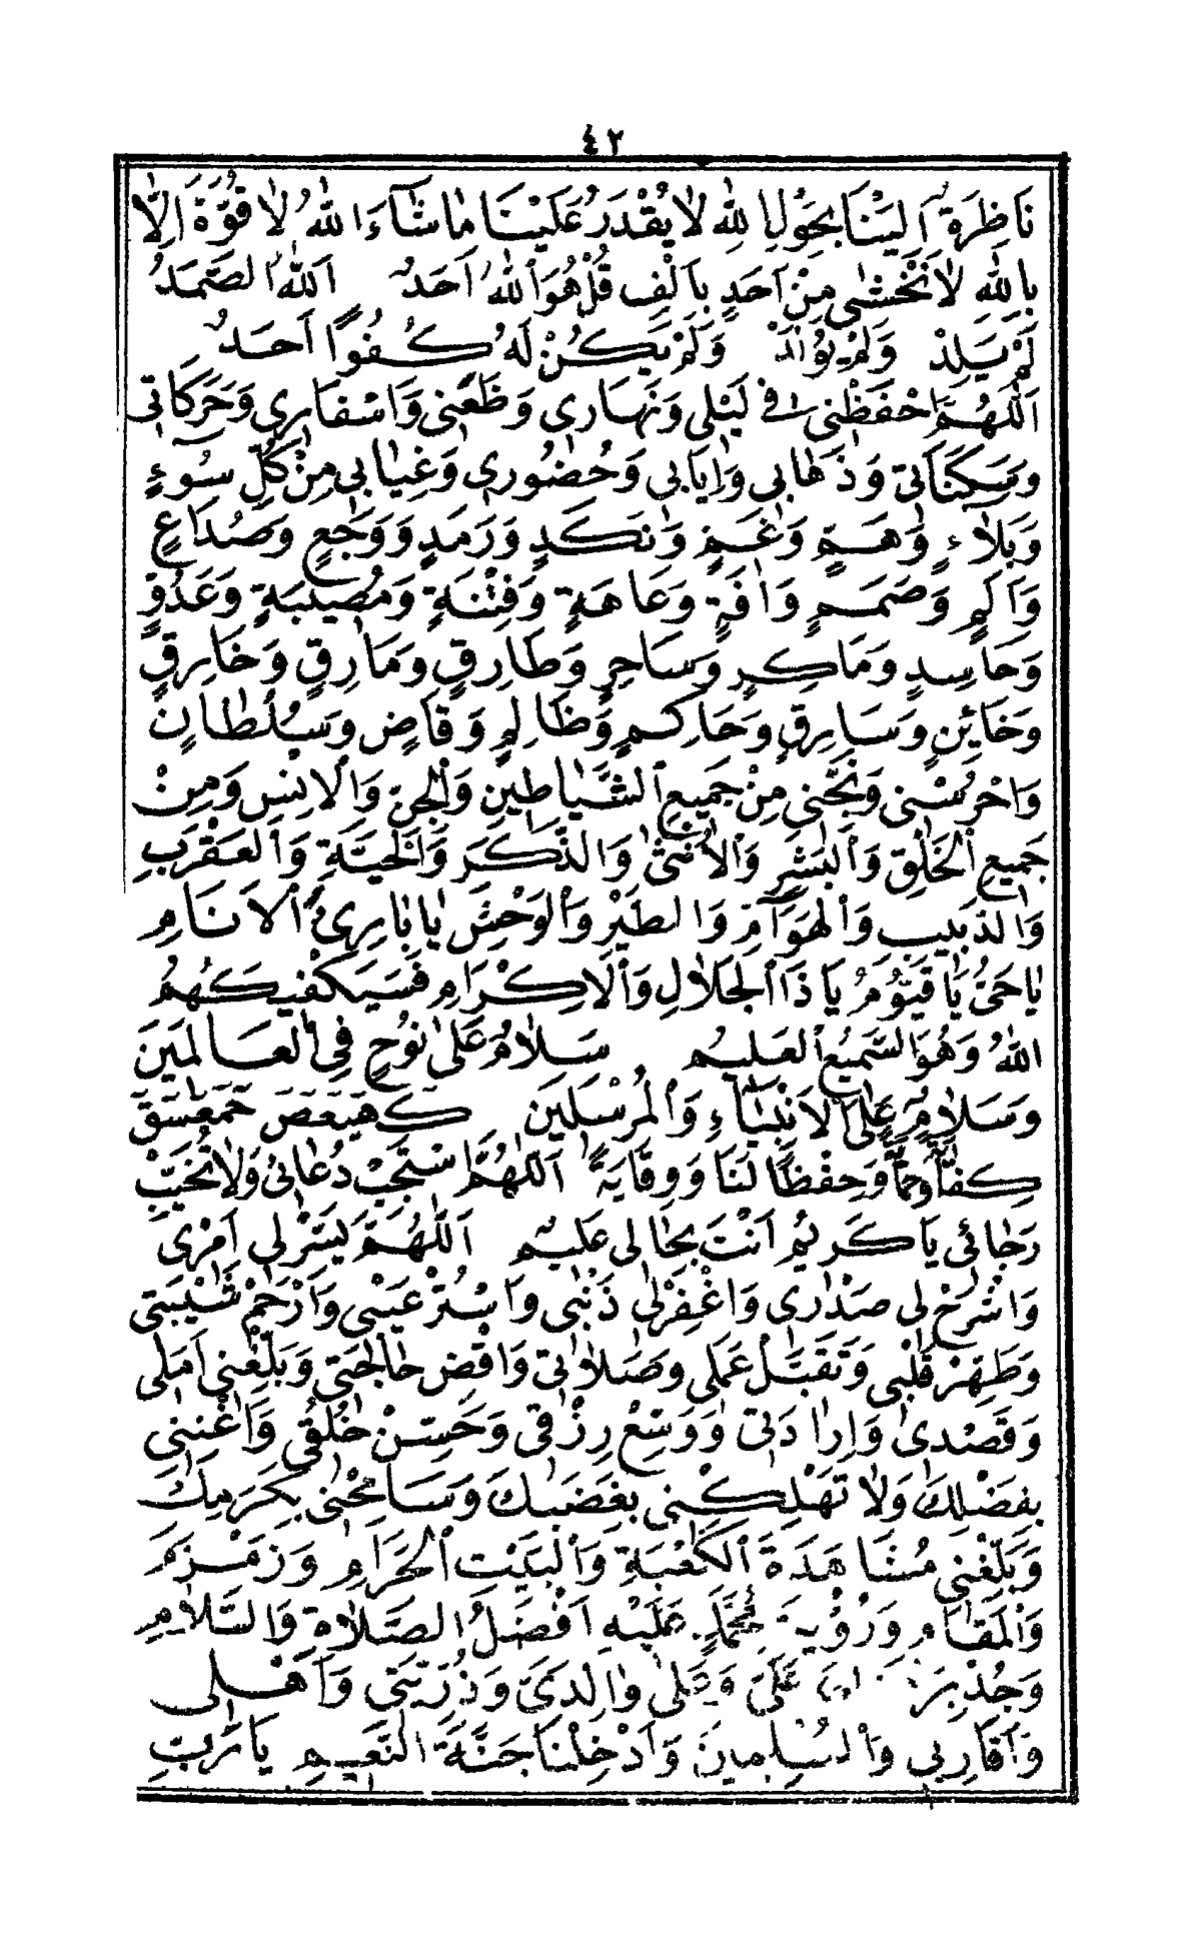 ٤٢
نَاظِرَةٌ اِلَيْنَا بِحَوْلِ اللهِ لَا يُقْدَرُ عَلَيْنَا مَا شَاءَ اللهُ لَا قُوَّةَ اِلَّا
بِاللهِ لَا نَخْشَى مِنْ اَحَدٍ بِاَلْفِ قُلْ هُوَ اللهُ اَحَدٌ اَللهُ الصَّمَدُ
لَمْ يَلِدْ وَلَمْ يُولَدْ وَلَمْ يَكُنْ لَهُ كُفُوًا اَحَدٌ
اَللّٰهُمَّ احْفَظْنِي فِي لَيْلِي وَنَهَارِي وَظَعْنِي وَاَسْفَارِي وَحَرَكَاتِي
وَسَكَنَاتِي وَذَهَابِي وَاِيَابِي وَحُضُورِي وَغِيَابِي مِنْ كُلِّ سُوءٍ
وَبَلَاءٍ وَهَمٍّ وَغَمٍّ وَنَكَدٍ وَرَمَدٍ وَوَجَعٍ وَصُدَاعٍ
وَاَلَمٍ وَصَمَمٍ وَاٰفَةٍ وَعَاهَةٍ وَفِتْنَةٍ وَمُصِيبَةٍ وَعَدُوٍّ
وَحَاسِدٍ وَمَاكِرٍ وَسَاحِرٍ وَطَارِقٍ وَمَارِقٍ وَحَارِقٍ
وَخَائِنٍ وَسَارِقٍ وَحَاكِمٍ وَظَالِمٍ وَقَاضٍ وَسُلْطَانٍ
وَاحْرُسْنِي وَنَجِّنِي مِنْ جَمِيعِ الشَّيَاطِينِ وَالْجِنِّ وَالْاِنْسِ وَمِنْ
جَمِيعِ الْخَلْقِ وَالْبَشَرِ وَالْاُنْثَى وَالذَّكَرِ وَالْحَيَّةِ وَالْعَقْرَبِ
وَالدَّبِيبِ وَالْهَوَامِّ وَالطَّيْرِ وَالْوَحْشِ يَا بَارِئَ الْاَنَامِ
يَا حَيُّ يَا قَيُّومُ يَا ذَا الْجَلَالِ وَالْاِكْرَامِ فَسَيَكْفِيكَهُمُ
اللهُ وَهُوَ السَّمِيعُ الْعَلِيمُ سَلَامٌ عَلَى نُوحٍ فِي الْعَالَمِينَ
وَسَلَامٌ عَلَى الْاَنْبِيَاءِ وَالْمُرْسَلِينَ كهيعص حمعسق
كفًّا وَحِفْظًا لَنَا وَوِقَايَةً اَللّٰهُمَّ اسْتَجِبْ دُعَائِي وَلَا تُخَيِّبْ
رَجَائِي يَا كَرِيمُ اَنْتَ بِحَالِي عَلِيمٌ اَللّٰهُمَّ يَسِّرْ لِي اَمْرِي
وَاشْرَحْ لِي صَدْرِي وَاغْفِرْ لِي ذَنْبِي وَاسْتُرْ عَيْبِي وَارْحَمْ شَيْبَتِي
وَطَهِّرْ قَلْبِي وَتَقَبَّلْ عَمَلِي وَصَلَاتِي وَاقْضِ حَاجَتِي وَبَلِّغْنِي اَمَلِي
وَقَصْدِي وَاِرَادَتِي وَوَسِّعْ رِزْقِي وَحَسِّنْ خُلُقِي وَاَغْنِنِي
بِفَضْلِكَ وَلَا تُهْلِكْنِي بِغَضَبِكَ وَسَامِحْنِي بِكَرَمِكَ
وَبَلِّغْنِي مُشَاهَدَةَ الْكَعْبَةِ وَالْبَيْتِ الْحَرَامِ وَزَمْزَمَ
وَالْمَقَامِ وَرُؤْيَةَ مُحَمَّدٍ عَلَيْهِ اَفْضَلُ الصَّلَاةِ وَالسَّلَامِ
وَجُدْ عَلَيَّ وَعَلَى وَالِدَيَّ وَذُرِّيَّتِي وَاَهْلِي
وَاَقَارِبِي وَالْمُسْلِمِينَ وَاَدْخِلْنَا جَنَّةَ النَّعِيمِ يَا رَبِّ